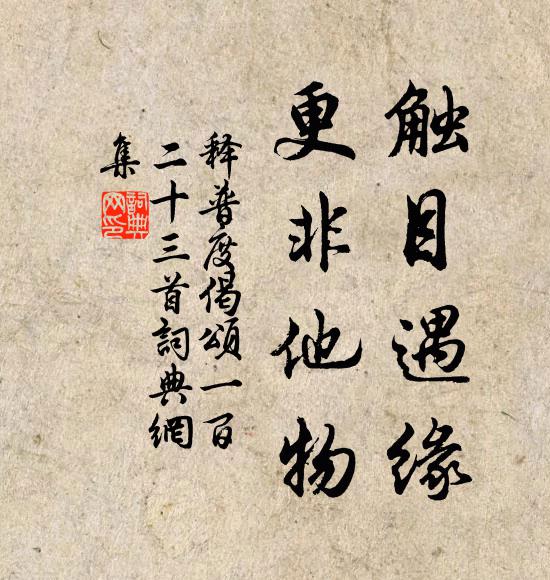 触目遇緣
更非他物
释普度偈頌一百
二十三首詞典網
集
詞典
网印